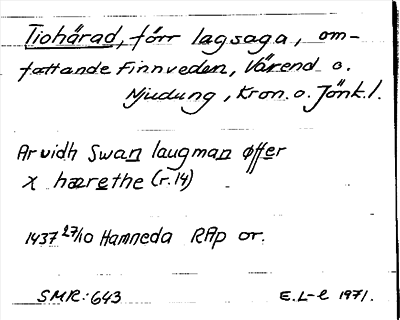 Tiohärad, förr lagsaga, om-
fattande Finnveden, Värend o.
Njudung, Kron. o. Jönk.l.
Arvidh Swan laugman øffer
X hærethe (r. 14)
1437 27/10 Hamneda RAp or.
SMR: 643 E. L-l 1971.